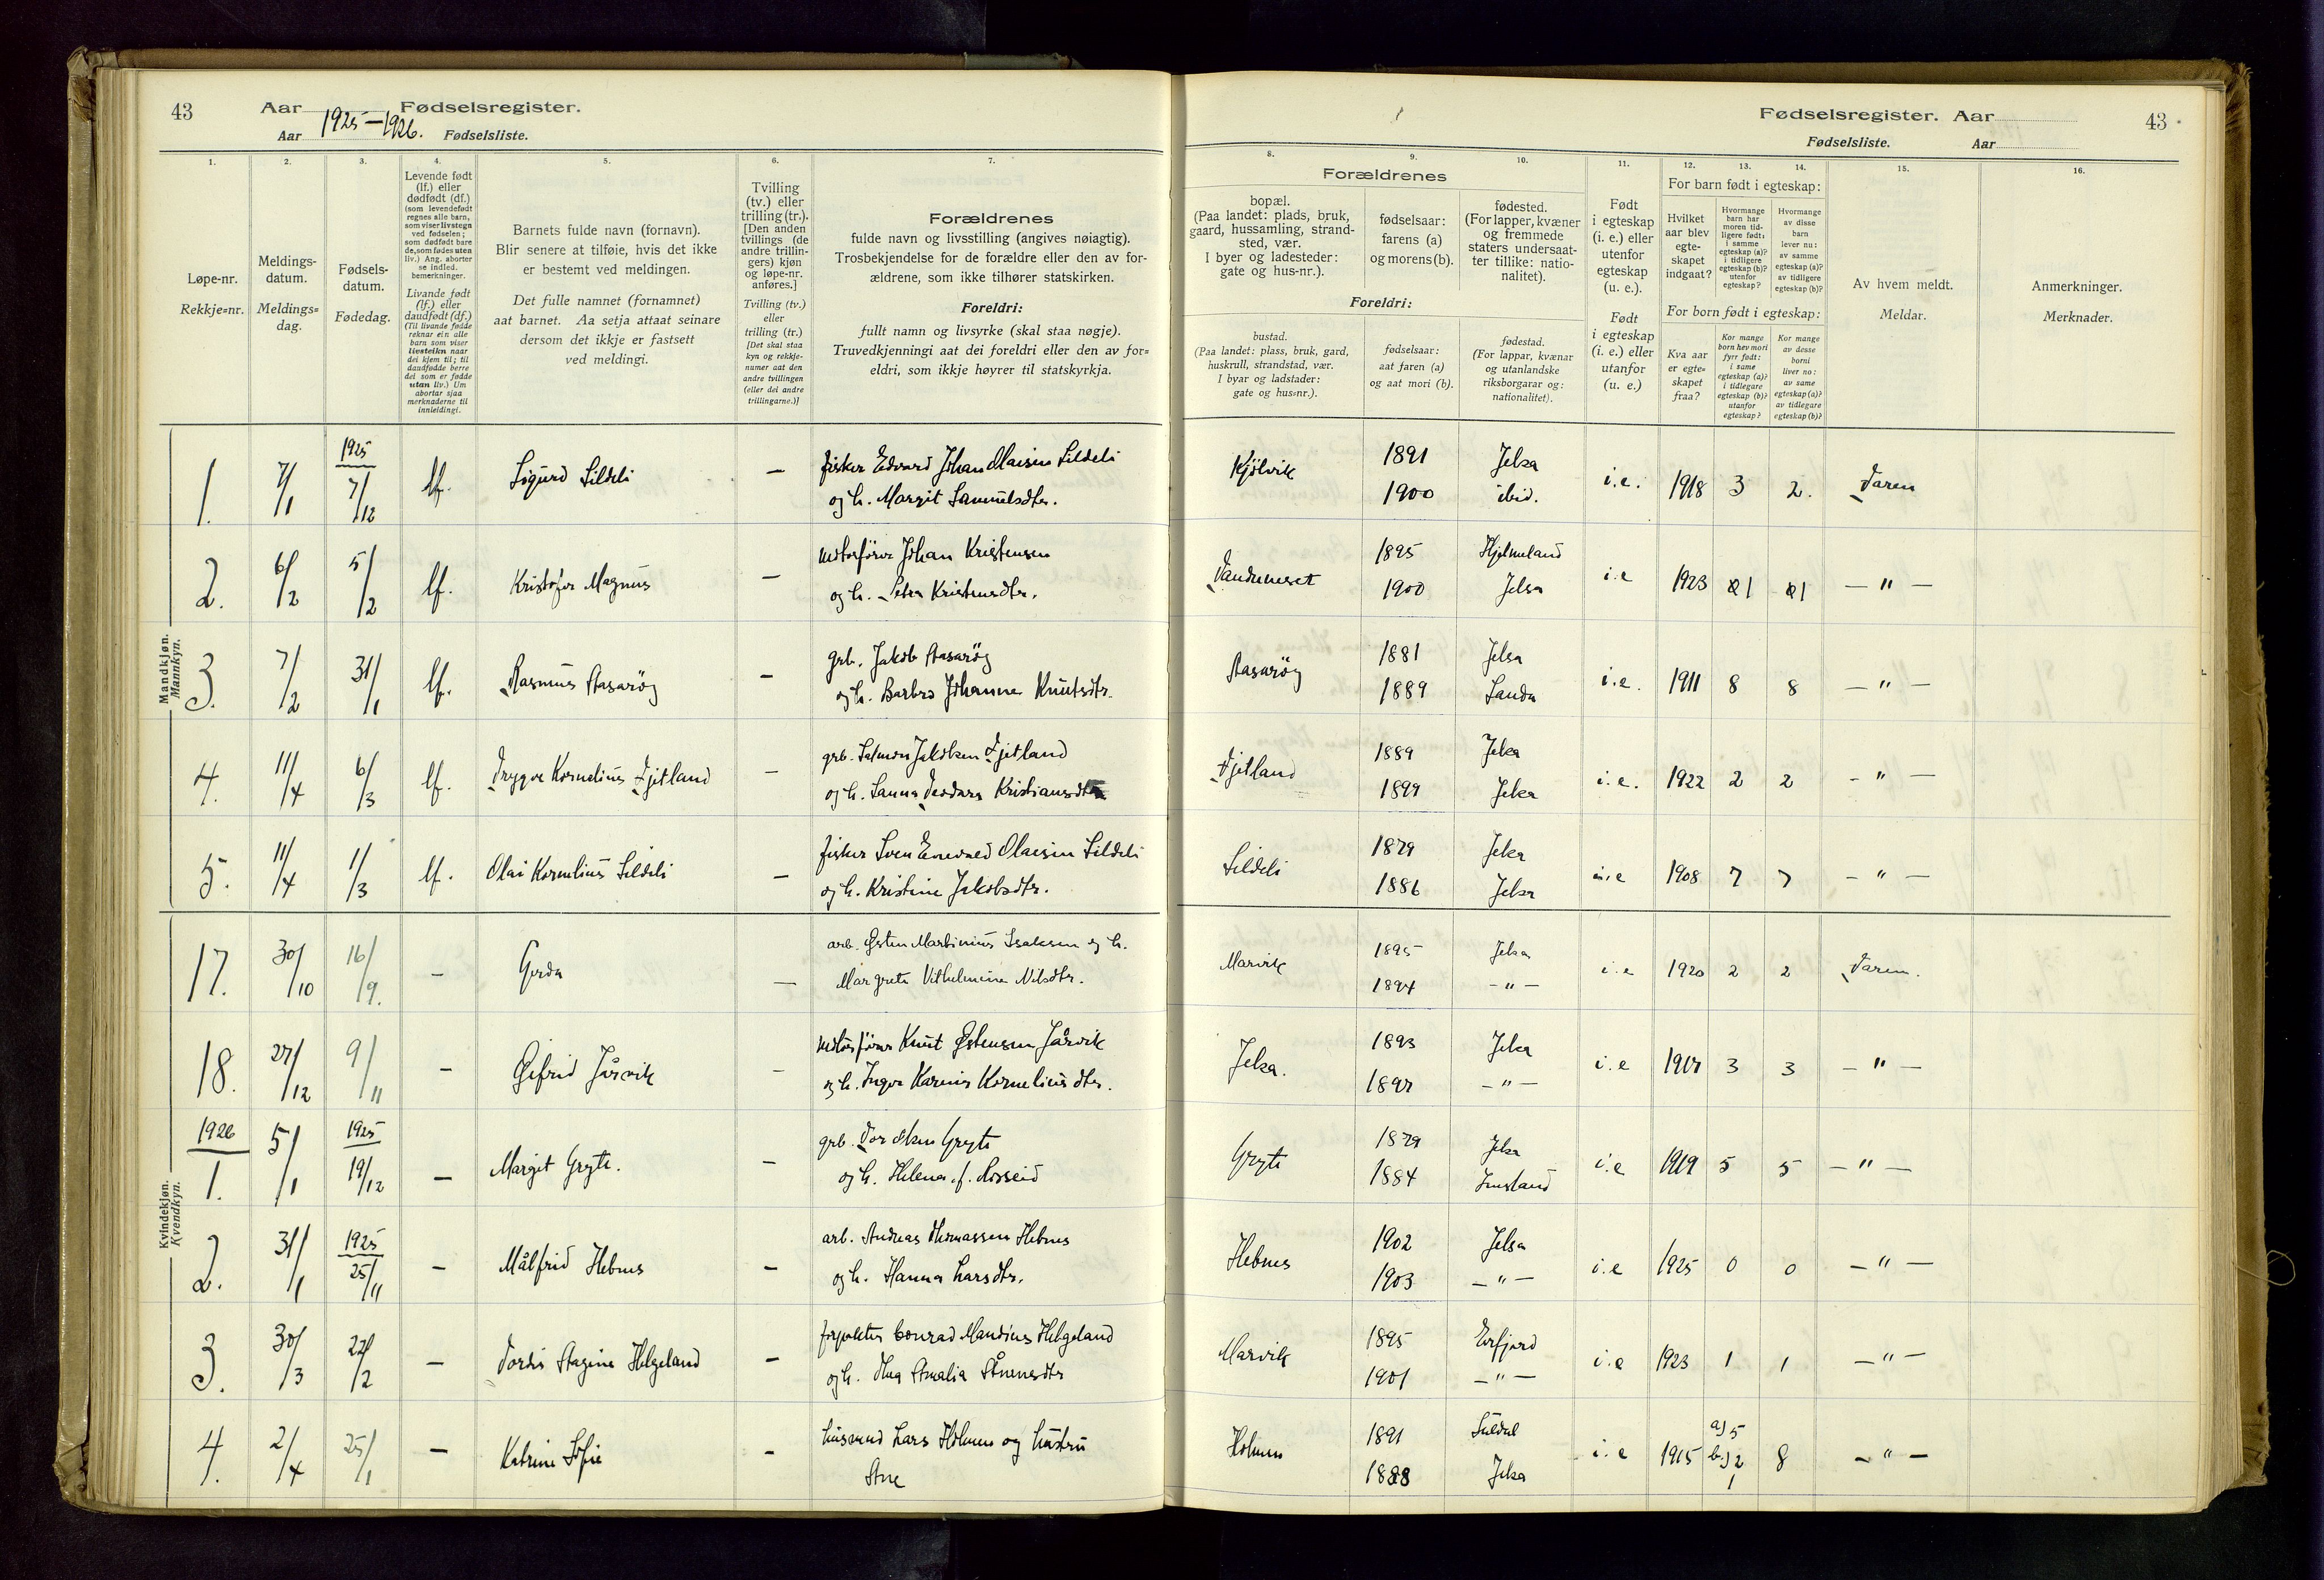 43 Aar Fødselsregister.
Aar 1925–1926. Fødselsliste.
Fødselsregister. Aar 43
Fødselsliste. Aar
1. 2. 3. 4. 5. 6. 7. 8. 9. 10. 11. 12. 13. 14. 15. 16.
Løpe-nr.
Rekkje=nr.
Meldings-
datum.
Meldings=
dag.
Fødsels-
datum.
Fødedag.
Levende født
(lf.) eller
dødfødt (df.)
(som levendefødt
regnes alle barn,
som viser livstegn
ved fødselen;
som dødfødt bare
de, som fødes uten
liv.) Ang. aborter
se indled.
bemerkninger.
Livande født
(lf.) eller
daudfødt (df.)
(Til livande fødde
reknar ein alle
barn som viser
livsteikn naar
dei kjem til; til
daudfødde berre
dei som er fødde
utan liv.) Um
abortar sjaa
merknaderne til
innleidingi.
Barnets fulde navn (fornavn).
Blir senere at tilføie, hvis det ikke
er bestemt ved meldingen.
Det fulle namnet (fornamnet)
aat barnet. Aa setja attaat seinare
dersom det ikkje er fastsett
ved meldingi.
Tvilling
(tv.) eller
trilling (tr.).
[Den anden
tvillings (de
andre trillin-
gers) kjøn
og løpe-nr.
anføres.]
Tvilling (tv.)
eller
trilling (tr.)
[Det skal staa
kyn og rekkje-
numer aat den
andre tvillingen
(eller dei andre
trillingarne.)]
Forældrenes
fulde navn og livsstilling (angives nøiagtig).
Trosbekjendelse for de forældre eller den av for-
ældrene, som ikke tilhører statskirken.
Foreldri:
fullt namn og livsyrke (skal staa nøgje).
Truvedkjenningi aat dei foreldri eller den av for=
eldri, som ikkje høyrer til statskyrkja.
Forældrenes
bopæl.
(Paa landet: plads, bruk,
gaard, hussamling, strand-
sted, vær.
I byer og ladesteder:
gate og hus-nr.).
fødselsaar:
farens (a)
og morens (b).
fødested.
(For lapper, kvæner
og fremmede
staters undersaat-
ter tillike: natio-
nalitet).
Foreldri:
bustad.
(Paa landet: plass, bruk, gard,
huskrull, strandstad, vær.
I byar og ladstader:
gate og hus=nr.).
fødselsaar:
aat faren (a)
og aat mori (b).
fødestad.
(For lappar, kvænar
og utanlandske
riksborgarar og:
nationalitet).
Født
i egteskap
(i. e.) eller
utenfor
egteskap
(u. e.).
Født
i egteskap
(i. e.) eller
utanfor
(u. e.)
For barn født i egteskap:
Hvilket
aar blev
egte-
skapet
indgaat?
Hvormange
barn har
moren tid-
ligere født:
i samme
egteskap (a)?
i tidligere
egteskap (b)?
utenfor
egteskap?
Hvormange
av disse
barn
lever nu:
av samme
egteskap (a)?
av tidligere
egteskap (b)?
For born født i egteskap:
Kva aar
er egte=
skapet
fraa?
Kor mange
born hev mori
fyrr født:
i same
egteskap (a)?
i tidlegare
egteskap (b)?
utanfor
egteskap?
Kor mange
av desse
borni
liver no:
av same
egteskap (a)?
av tidlegare
egteskap (b)?
Av hvem meldt.
Meldar.
Anmerkninger.
Merknader.
Mandkjøn.
Mannkyn.
1. 7/1 1925 7/12 lf. Sigurd Sildeli — fisker Edvard Johan Olaisen Sildeli Kjölvik 1891 Jelsa i.e. 1918 3 2. Faren
og h. Margit Samuelsdtr. 1900 ibid.
2. 6/2 5/2 lf. Kristofer Magnus — motorförer Johan Kristensen 1895 Hjelmeland i.e 1923 1 1 — " —
og h. Petra Kristensdtr. 1900 Jelsa
3. 7/2 31/1 lf. Rasmus Aasaröy — grb. Jakob Aasaröy Aasaröy 1881 Jelsa i.e. 1911 8 8 — " —
og h. Barbro Johanne Knutsdtr. 1889 Sauda
4. 11/4 6/3 lf. Trygve Kornelius Fjetland — grb. Salmon Jakobsen Fjetland Fjetland 1889 Jelsa i.e. 1922 2 2 — " —
og h. Sanna Teodora Kristiansdtr 1899 Jelsa
5. 11/4 1/3 lf. Olai Kornelius Sildeli — fisker Sven Enevald Olaisen Sildeli Sildeli 1879 Jelsa i.e 1908 7 7 — " —
og h. Kristine Jakobsdtr. 1886 Jelsa
Kvindekjøn.
Kvendkyn.
17. 30/10 16/9. — Gerda — arb. Østen Martinius Isaksen og h. Marvik 1895 Jelsa i.e 1920 2 2 Faren.
Margrete Vilhelmine Nilsdtr. 1894 — " —
18. 27/12 9/11 — Øifrid Jårvik — motorförer Knut Østensen Jårvik Jelsa. 1893 Jelsa i.e 1917 3 3 — " —
og h. Inger Karine Korneliusdtr. 1897 — " —
1926
1. 5/1 1925 19/12 — Margit Gryte. — grb. Tor Olsen Gryte Gryte 1879 Jelsa i.e 1919 5 5 — " —
og h. Helena f. Rosseid 1884 Imsland
2. 31/1 1925 25/11 — Målfrid Hebnes — arb. Andreas Thomassen Hebnes Hebnes 1902 Jelsa i.e 1925 0 0 — " —
og h. Hanna Larsdtr. 1903 — " —
3. 30/3 22/2 — Tordis Aagine Helgeland — forpakter Conrad Mandius Helgeland Marvik 1895 Erfjord i.e 1923 1 1 — " —
og h. Thea Amalia Ånensdtr 1901 — " —
4. 2/4 25/1 — Katrine Sofie — husmand Lars Holmen og hustru Holmen 1891 Suldal i.e 1915 a) 5 b.) 2 1 8 — " —
Ane 1888 Jelsa